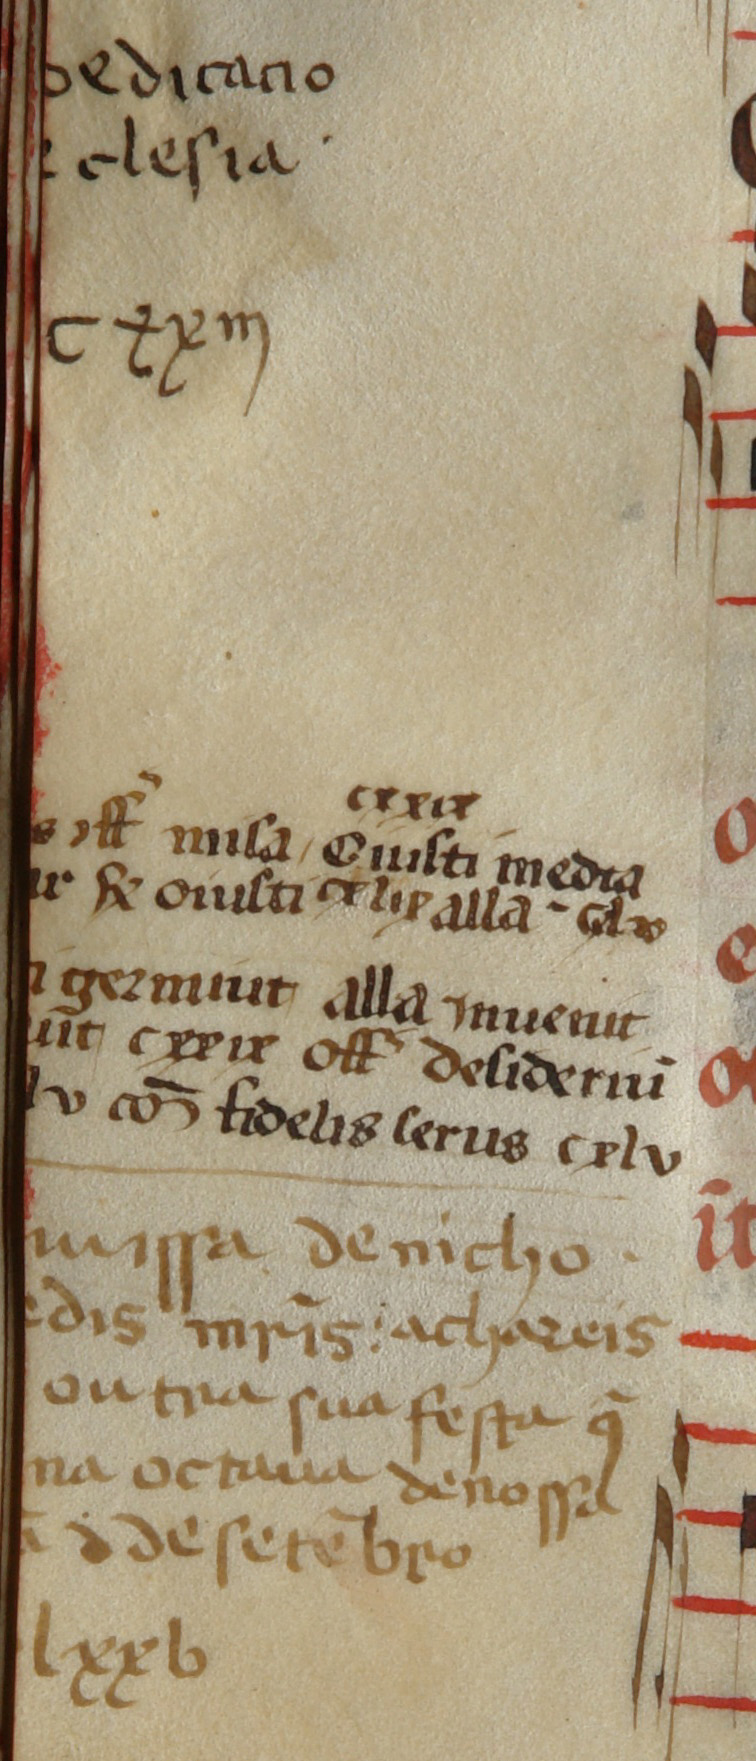 dedicatio
eclesia
c xxiij
cxxix
s off̃ missa Oiusti media
ur ℟ oiusti cxlix alla
i germīnt alla Inuenit
uīt cxxix off̃ desideriū
lv cōꝫ fidelis serus cxlv
missa de nicho
edis mr̃is: achareis
outra sua festa q̃
na octaua de nossa
ã d de setẽbro
lxxb